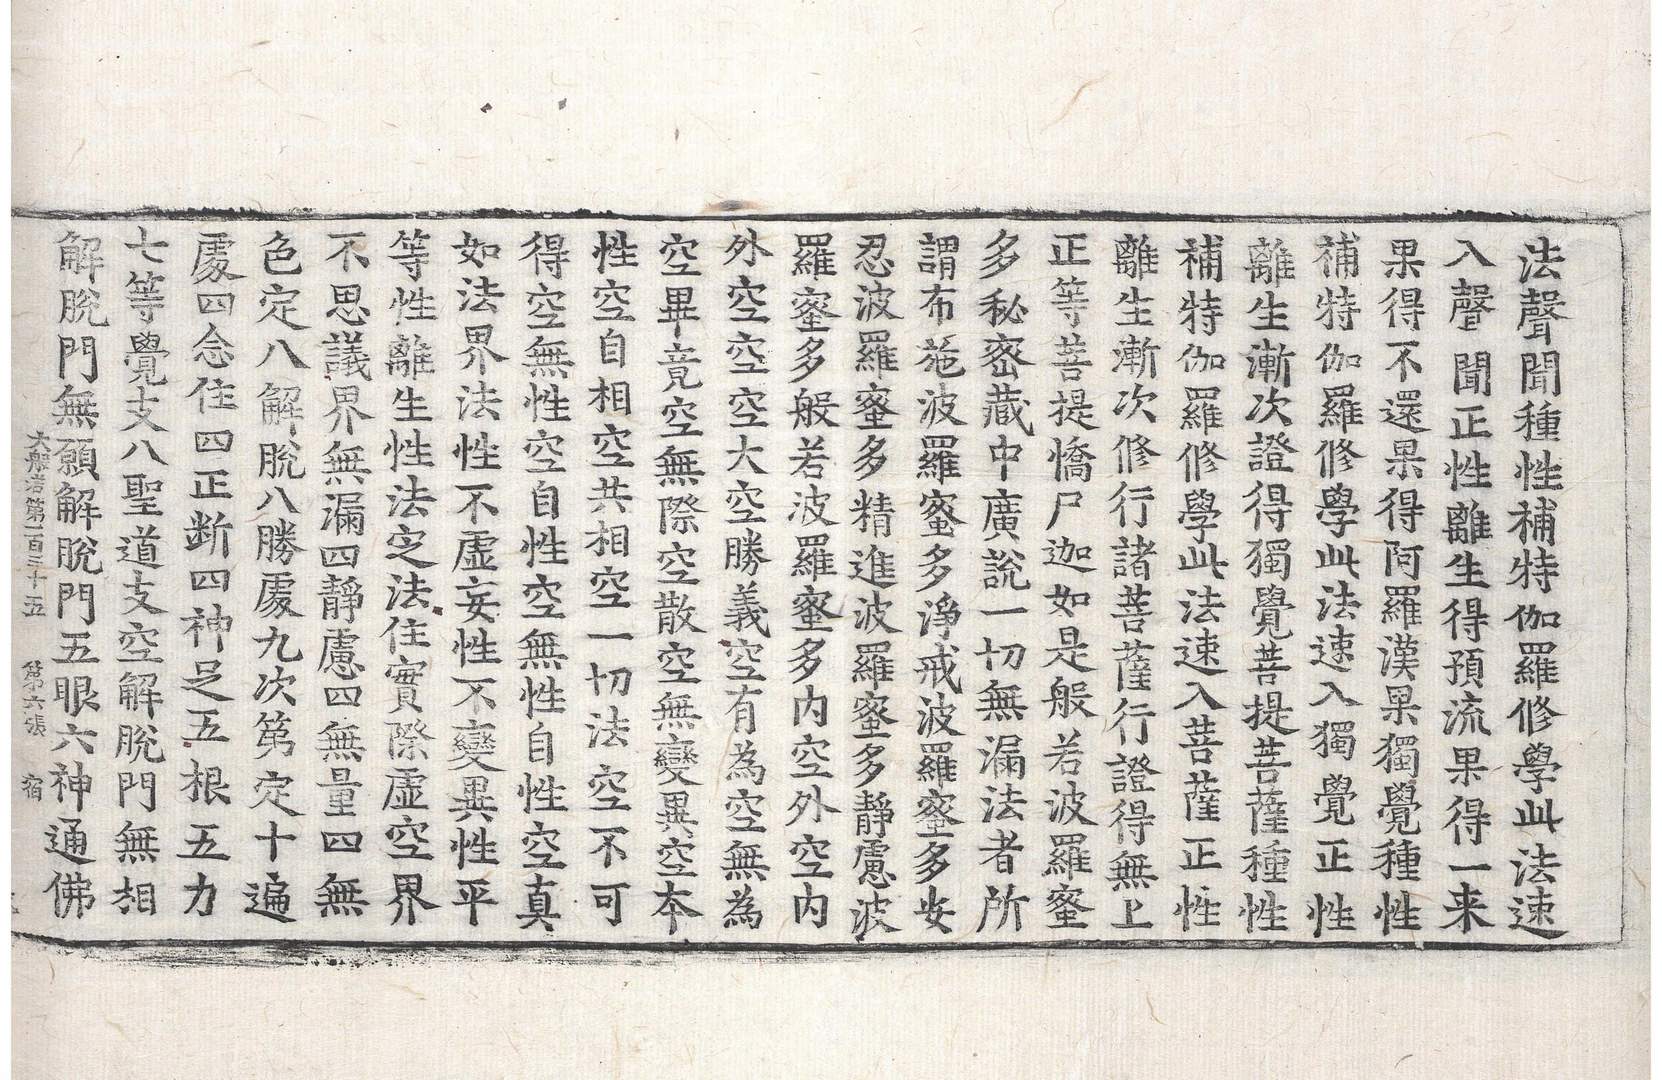 法聲聞種性補特伽羅修學此法速
入聲聞正性離生得預流果得一来
果得不還果得阿羅漢果獨覺種性
補特伽羅修學此法速入獨覺正性
離生漸次證得獨覺菩提菩薩種性
補特伽羅修學此法速入菩薩正性
離生漸次修行諸菩薩行證得無上
正等菩提憍尸迦如是般若波羅蜜
多秘密藏中廣說一切無漏法者所
謂布施波羅蜜多淨戒波羅蜜多安
忍波羅蜜多精進波羅蜜多靜慮波
羅蜜多般若波羅蜜多內空外空內
外空空空大空勝義空有為空無為
空畢竟空無際空散空無變異空本
性空自相空共相空一切法空不可
得空無性空自性空無性自性空真
如法界法性不虛妄性不變異性平
等性離生性法定法住實際虛空界
不思議界無漏四靜慮四無量四無
色定八解脫八勝處九次第定十遍
處四念住四正断四神足五根五力
七等覺支八聖道支空解脫門無相
解脫門無願解脫門五眼六神通佛
大般若第一百三十五 第六張 宿